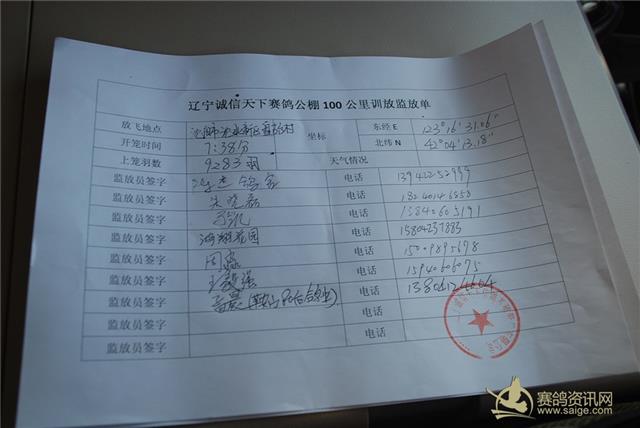 辽宁诚信天下赛鸽公棚 100 公里训放监放单
放飞地点 坐标 东经 E 123°16′31.06″
开笼时间 7:38分 北纬 N 42°04′13.18″
上笼羽数 9283羽 天气情况
监放员签字 电话 13942252999
监放员签字 电话
监放员签字 电话 15840605191
监放员签字 鸿翔花园 电话 15804237883
监放员签字 周淼 电话 15009895698
监放员签字 王毅强 电话 15940606075
监放员签字 孟晨 电话 13804124604
监放员签字 电话
监放员签字 电话
赛鸽资讯网
www.saige.com